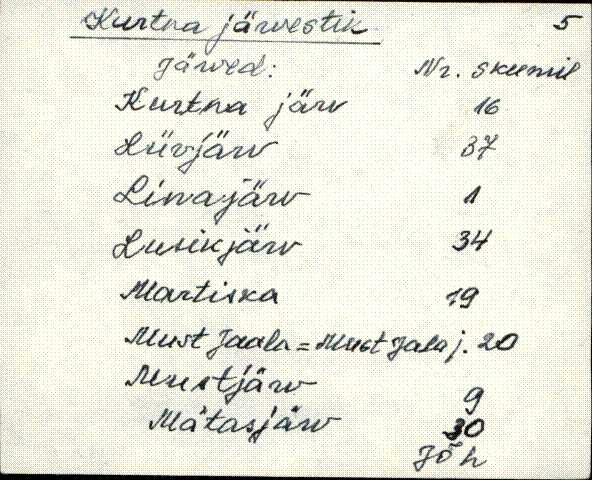 Kurtna järvestik 5
Järved: Nr. skeemil
Kurtna järv 16
Liivjärv 37
Linajärv 1
Lusikjärv 34
Martiska 19
Must Jaala = Must Jala j. 20
Mustjärv 9
Mätasjärv 30
Jõh